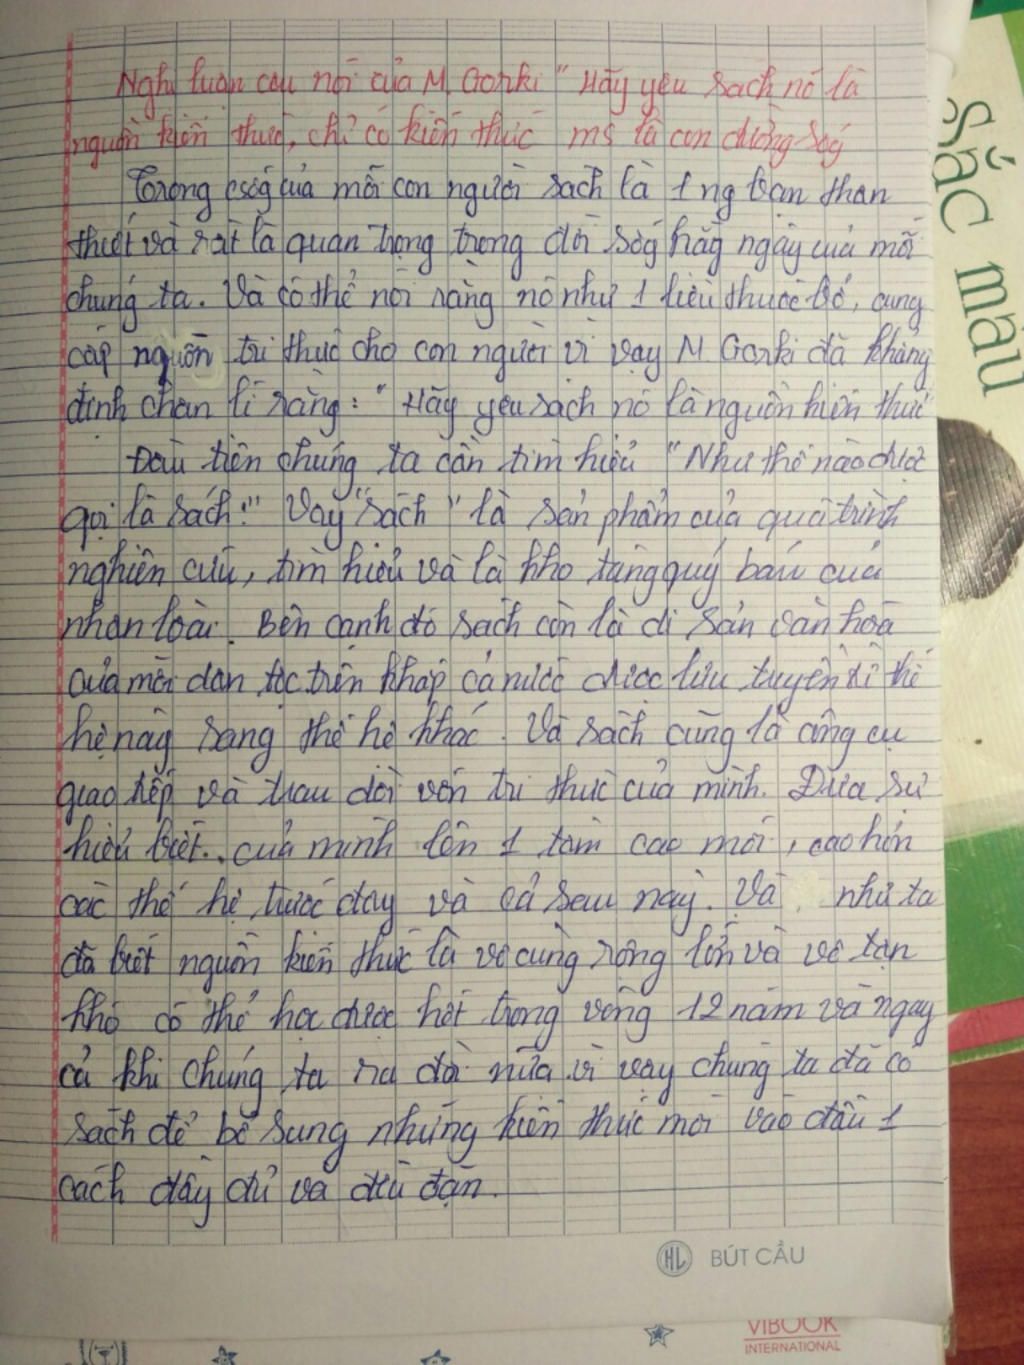 Nghị luận câu nói của M. Gorki " Hãy yêu sách nó là
nguồn kiến thức, chỉ có kiến thức ms là con đường sốg
Trong csốg của mỗi con người sách là 1 ng bạn thân
thiết và rất là quan trọng trong đời sốg hằg ngày của mỗi
chúng ta. Và có thể nói rằng nó như 1 liều thuốc bổ, cung
cấp nguồn tri thức cho con người vì vậy M Gorki đã khẳng
định chân lí rằng: " Hãy yêu sách nó là nguồn kiến thức"
Đầu tiên chúng ta cần tìm hiểu "Như thế nào được
gọi là sách!" Vậy "sách" là sản phẩm của quá trình
nghiên cứu, tìm hiểu và là kho tàng quý báu của
nhân loại. Bên cạnh đó sách còn là di sản văn hóa
của mỗi dân tộc trên khắp cả nước được lưu truyền từ thế
hệ này sang thế hệ khác. Và sách cũng là công cụ
giao tiếp và trau dồi vốn tri thức của mình. Đưa sự
hiểu biết.. của mình lên 1 tầm cao mới, cao hơn
các thế hệ trước đây và cả sau này. Và như ta
đã biết nguồn kiến thức là vô cùng rộng lớn và vô tận
khó có thể học được hết trong vòng 12 năm và ngay
cả khi chúng ta ra đời nữa vì vậy chúng ta đã có
sách để bổ sung những kiến thức mới vào đầu 1
cách đầy đủ và đều đặn.
HL BÚT CẦU
VIBOOK
INTERNATIONAL
Sắc màu